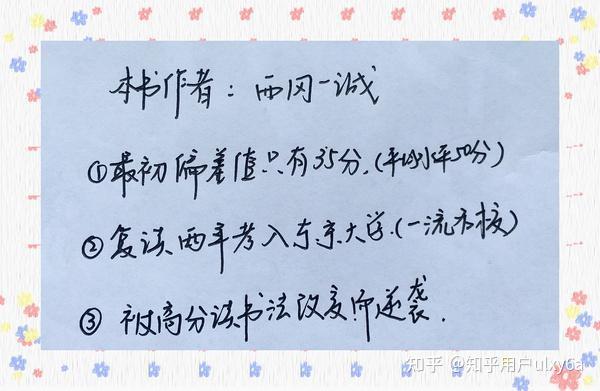 本书作者：西冈一诚
①最初偏差值只有35分.(平均水平50分)
②复读两年考入东京大学.(一流名校)
③被高分读书法改变而逆袭.
知乎 @知乎用户ulxy6a